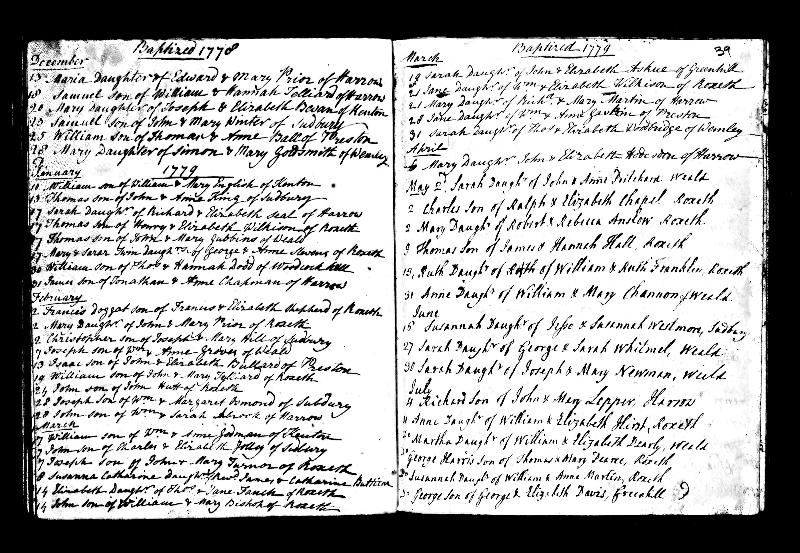 Baptized 1778
December
13 Maria Daughter of Edward & Mary Prior of Harrow
18 Samuel Son of William & Hannah Tolliard of Harrow
20 Mary Daught.r of Joseph & Elizabeth Bevan of Kenton
25 Samuel Son of John & Mary Winter of Sudbury
25 William Son of Thomas & Anne Ball of Preston
28 Mary Daughter of Simon & Mary Goldsmith of Wemley
January 1779
10 William son of William & Mary English of Kenton
13 Thomas son of John & Anne King of Sudbury
17 Sarah Daught.r of Richard & Elizabeth Seal of Harrow
17 Thomas son of Henry & Elizabeth Wilkison of Roxeth
17 Thomas son of John & Mary Gubbins of Weald
17 Mary & Sarah Twin Daught.rs of George & Anne Stevens of Roxeth
30 William son of Tho.s & Hannah Dodd of Woodcock hill
31 James son of Jonathan & Anne Chapman of Harrow
February
2 Francis Doggat son of Francis & Elizabeth Shepherd of Roxeth
2 Mary Daught.r of John & Mary Prior of Roxeth
2 Christopher son of Joseph & Mary Hill of Sudbury
7 Joseph son of W.m & Anne Groves of Weald
13 Isaac son of John & Elizabeth Bullard of Preston
19 William son of John & Mary of Roxeth
24 John son of John Hutt of Roxeth
28 Joseph Son of W.m & Margaret Osmond of Sudbury
28 John son of W.m & Sarah of Harrow
March
7 William son of W.m & Anne of Kenton
7 John son of Charles & Elizabeth Polley of Sudbury
7 Joseph son of John & Mary Turnor of Roxeth
8 Susanna Catharine Daught.r of James & Catharine
14 Elizabeth Daught.r of Tho.s & Jane Fauch of Roxeth
14 John Son of William & Mary Bishop of Roxeth
Baptized 1779 39
March
19 Sarah Daught.r of John & Elizabeth Ashue of Greenhill
21 Jane Daught.r of W.m & Elizabeth Wilkison of Roxeth
21 Mary Daught.r of Rich.d & Mary Martin of Harrow
28 Jane Daught.r of W.m & Anne Gaskin of Preston
31 Sarah Daught.r of Tho.s & Elizabeth Woodbridge of Wemley
April
6 Mary Daught.r John & Elizabeth Hodesdon of Harrow
May 2.d Sarah Daugh.r of John & Anne Pritchard Weald
2 Charles Son of Ralph & Elizabeth Chapel Roxeth
2 Mary Daugh.r of Robert & Rebecca Anslow Roxeth
9 Thomas Son of James & Hannah Hall, Roxeth
19, Ruth Daugh.r of Ruth of William & Ruth Franklin, Roxeth
31 Anne Daugh.r of William & Mary Channon of Weald
June
16 Susannah Daugh.r of Jesse & Susannah Westmore, Sudbury
27 Sarah Daugh.r of George & Sarah Whitmel, Weald
30 Sarah Daugh.r of Joseph & Mary Newman, Weald
July
4 Richard Son of John & Mary Lepper, Harrow
4 Anne Daugh.r of William & Elizabeth Hirst, Roxeth
Martha Daugh.r of William & Elizabeth Dearly, Weald
George Harris Son of Thomas & Mary Dearce, Roxeth
Susannah Daugh.r of William & Anne Martin, Roxeth
George Son of George & Elizabeth Davis, Greenhill